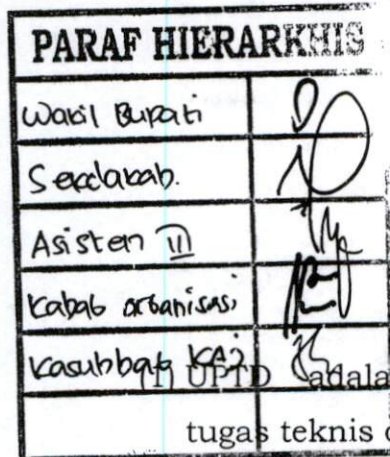 PARAF HIERARKHIS
Wakil Bupati
Sekdakab.
Asisten III
Kabag organisasi
Kasubbag KAJ
(1) UPTD adala
tugas teknis